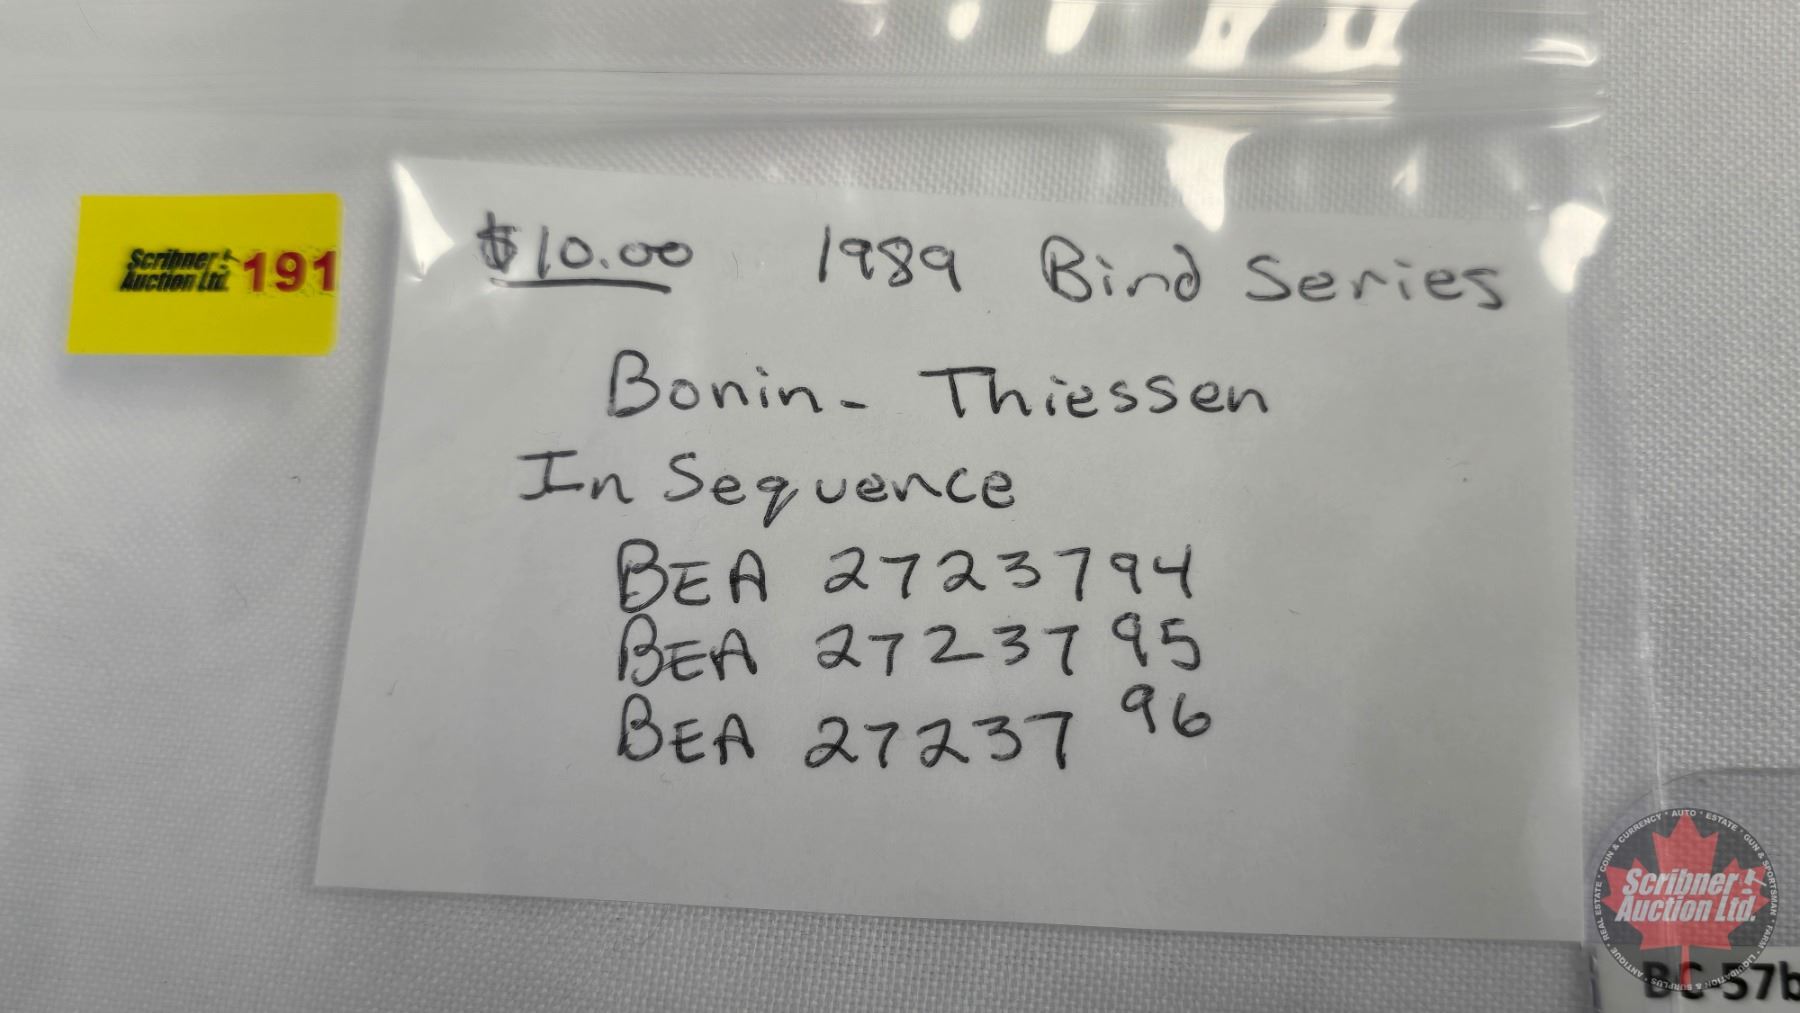 Scribner Auction Ltd. 191
$10.00 1989 Bird Series
Bonin - Thiessen
In Sequence
BEA 2723794
BEA 2723795
BEA 2723796
COIN & CURRENCY • AUTO • ESTATE • GUN & SPORTSMAN • FARM • LIQUIDATION & SURPLUS • ANTIQUE • REAL ESTATE •
Scribner
Auction Ltd.
BC-57b